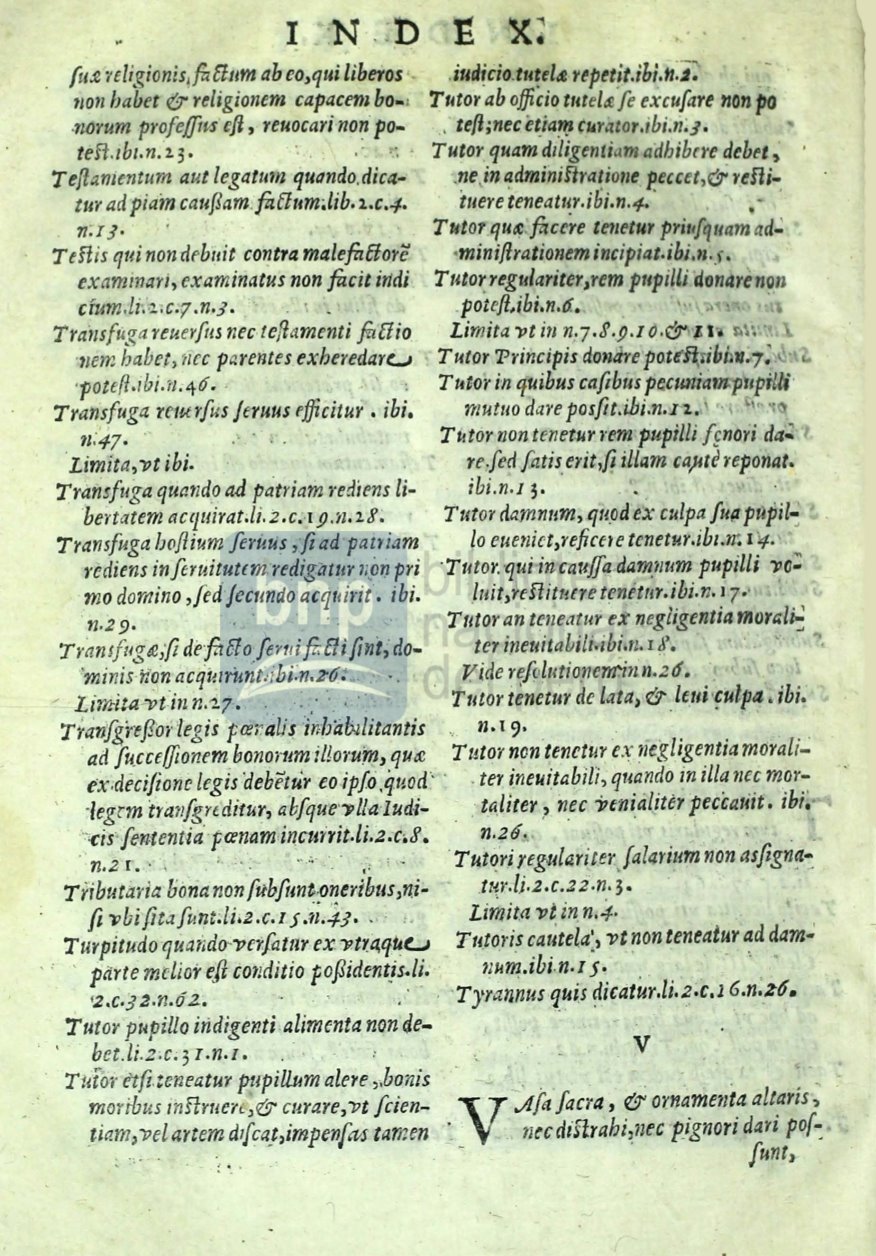 INDEX.
ſuæ religionis, factum ab eo, qui liberos
non habet & religionem capacem bo-
norum profeſſus eſt, reuocari non po-
teſt.ibi.n.23.
Teſtamentum aut legatum quando dica-
tur ad piam cauſſam factum.lib.2.c.4.
n.13.
Teſtis qui non debuit contra malefactorẽ
examinari, examinatus non facit indi
cium.li.2.c.7.n.3.
Transfuga reuerſus nec teſtamenti factio
nem habet, nec parentes exheredare
poteſt.ibi.n.46.
Transfuga reuerſus ſeruus efficitur . ibi.
n.47.
Limita, vt ibi.
Transfuga quando ad patriam rediens li-
bertatem acquirat.li.2.c.19.n.28.
Transfuga hoſtium ſeruus, ſi ad patriam
rediens in ſeruitutem redigatur non pri
mo domino, ſed ſecundo acquirit . ibi.
n.29.
Transfugæ, ſi de facto ſerui facti ſint, do-
minis non acquirunt.ibi.n.26.
Limita vt in n.27.
Tranſgreſſor legis pœnalis inhabilitantis
ad ſucceſſionem bonorum illorum, quæ
ex deciſione legis debẽtur eo ipſo, quod
legem tranſgreditur, abſque vlla Iudi-
cis ſententia pœnam incurrit.li.2.c.8.
n.21.
Tributaria bona non ſubſunt oneribus, ni-
ſi vbi ſita ſunt.li.2.c.15.n.43.
Turpitudo quando verſatur ex vtraque
parte melior eſt conditio poſſidentis.li.
2.c.32.n.62.
Tutor pupillo indigenti alimenta non de-
bet.li.2.c.31.n.1.
Tutor etſi teneatur pupillum alere, bonis
moribus inſtruere, & curare, vt ſcien-
tiam, vel artem diſcat, impenſas tamen
iudicio tutelæ repetit.ibi.n.2.
Tutor ab officio tutelæ ſe excuſare non po
teſt; nec etiam curator.ibi.n.3.
Tutor quam diligentiam adhibere debet,
ne in adminiſtratione peccet, & reſti-
tuere teneatur.ibi.n.4.
Tutor quæ facere tenetur priuſquam ad-
miniſtrationem incipiat.ibi.n.5.
Tutor regulariter, rem pupilli donare non
poteſt.ibi.n.6.
Limita vt in n.7.8.9.10.& 11.
Tutor Principis donare poteſt.ibi.n.7.
Tutor in quibus caſibus pecuniam pupilli
mutuo dare poſſit.ibi.n.12.
Tutor non tenetur rem pupilli fenori da-
re.ſed ſatis erit, ſi illam cautè reponat.
ibi.n.13.
Tutor damnum, quod ex culpa ſua pupil-
lo eueniet, reficere tenetur.ibi.n.14.
Tutor qui in cauſſa damnum pupilli vo-
luit, reſtituere tenetur.ibi.n.17.
Tutor an teneatur ex negligentia morali-
ter ineuitabili.ibi.n.18.
Vide reſolutionem in n.26.
Tutor tenetur de lata, & leui culpa . ibi.
n.19.
Tutor non tenetur ex negligentia morali-
ter ineuitabili, quando in illa nec mor-
taliter, nec venialiter peccauit. ibi.
n.26.
Tutori regulariter ſalarium non aſſigna-
tur.li.2.c.22.n.3.
Limita vt in n.4.
Tutoris cautela, vt non teneatur ad dam-
num.ibi n.15.
Tyrannus quis dicatur.li.2.c.16.n.26.
V
VAſa ſacra, & ornamenta altaris,
nec diſtrahi, nec pignori dari poſ-
ſunt,